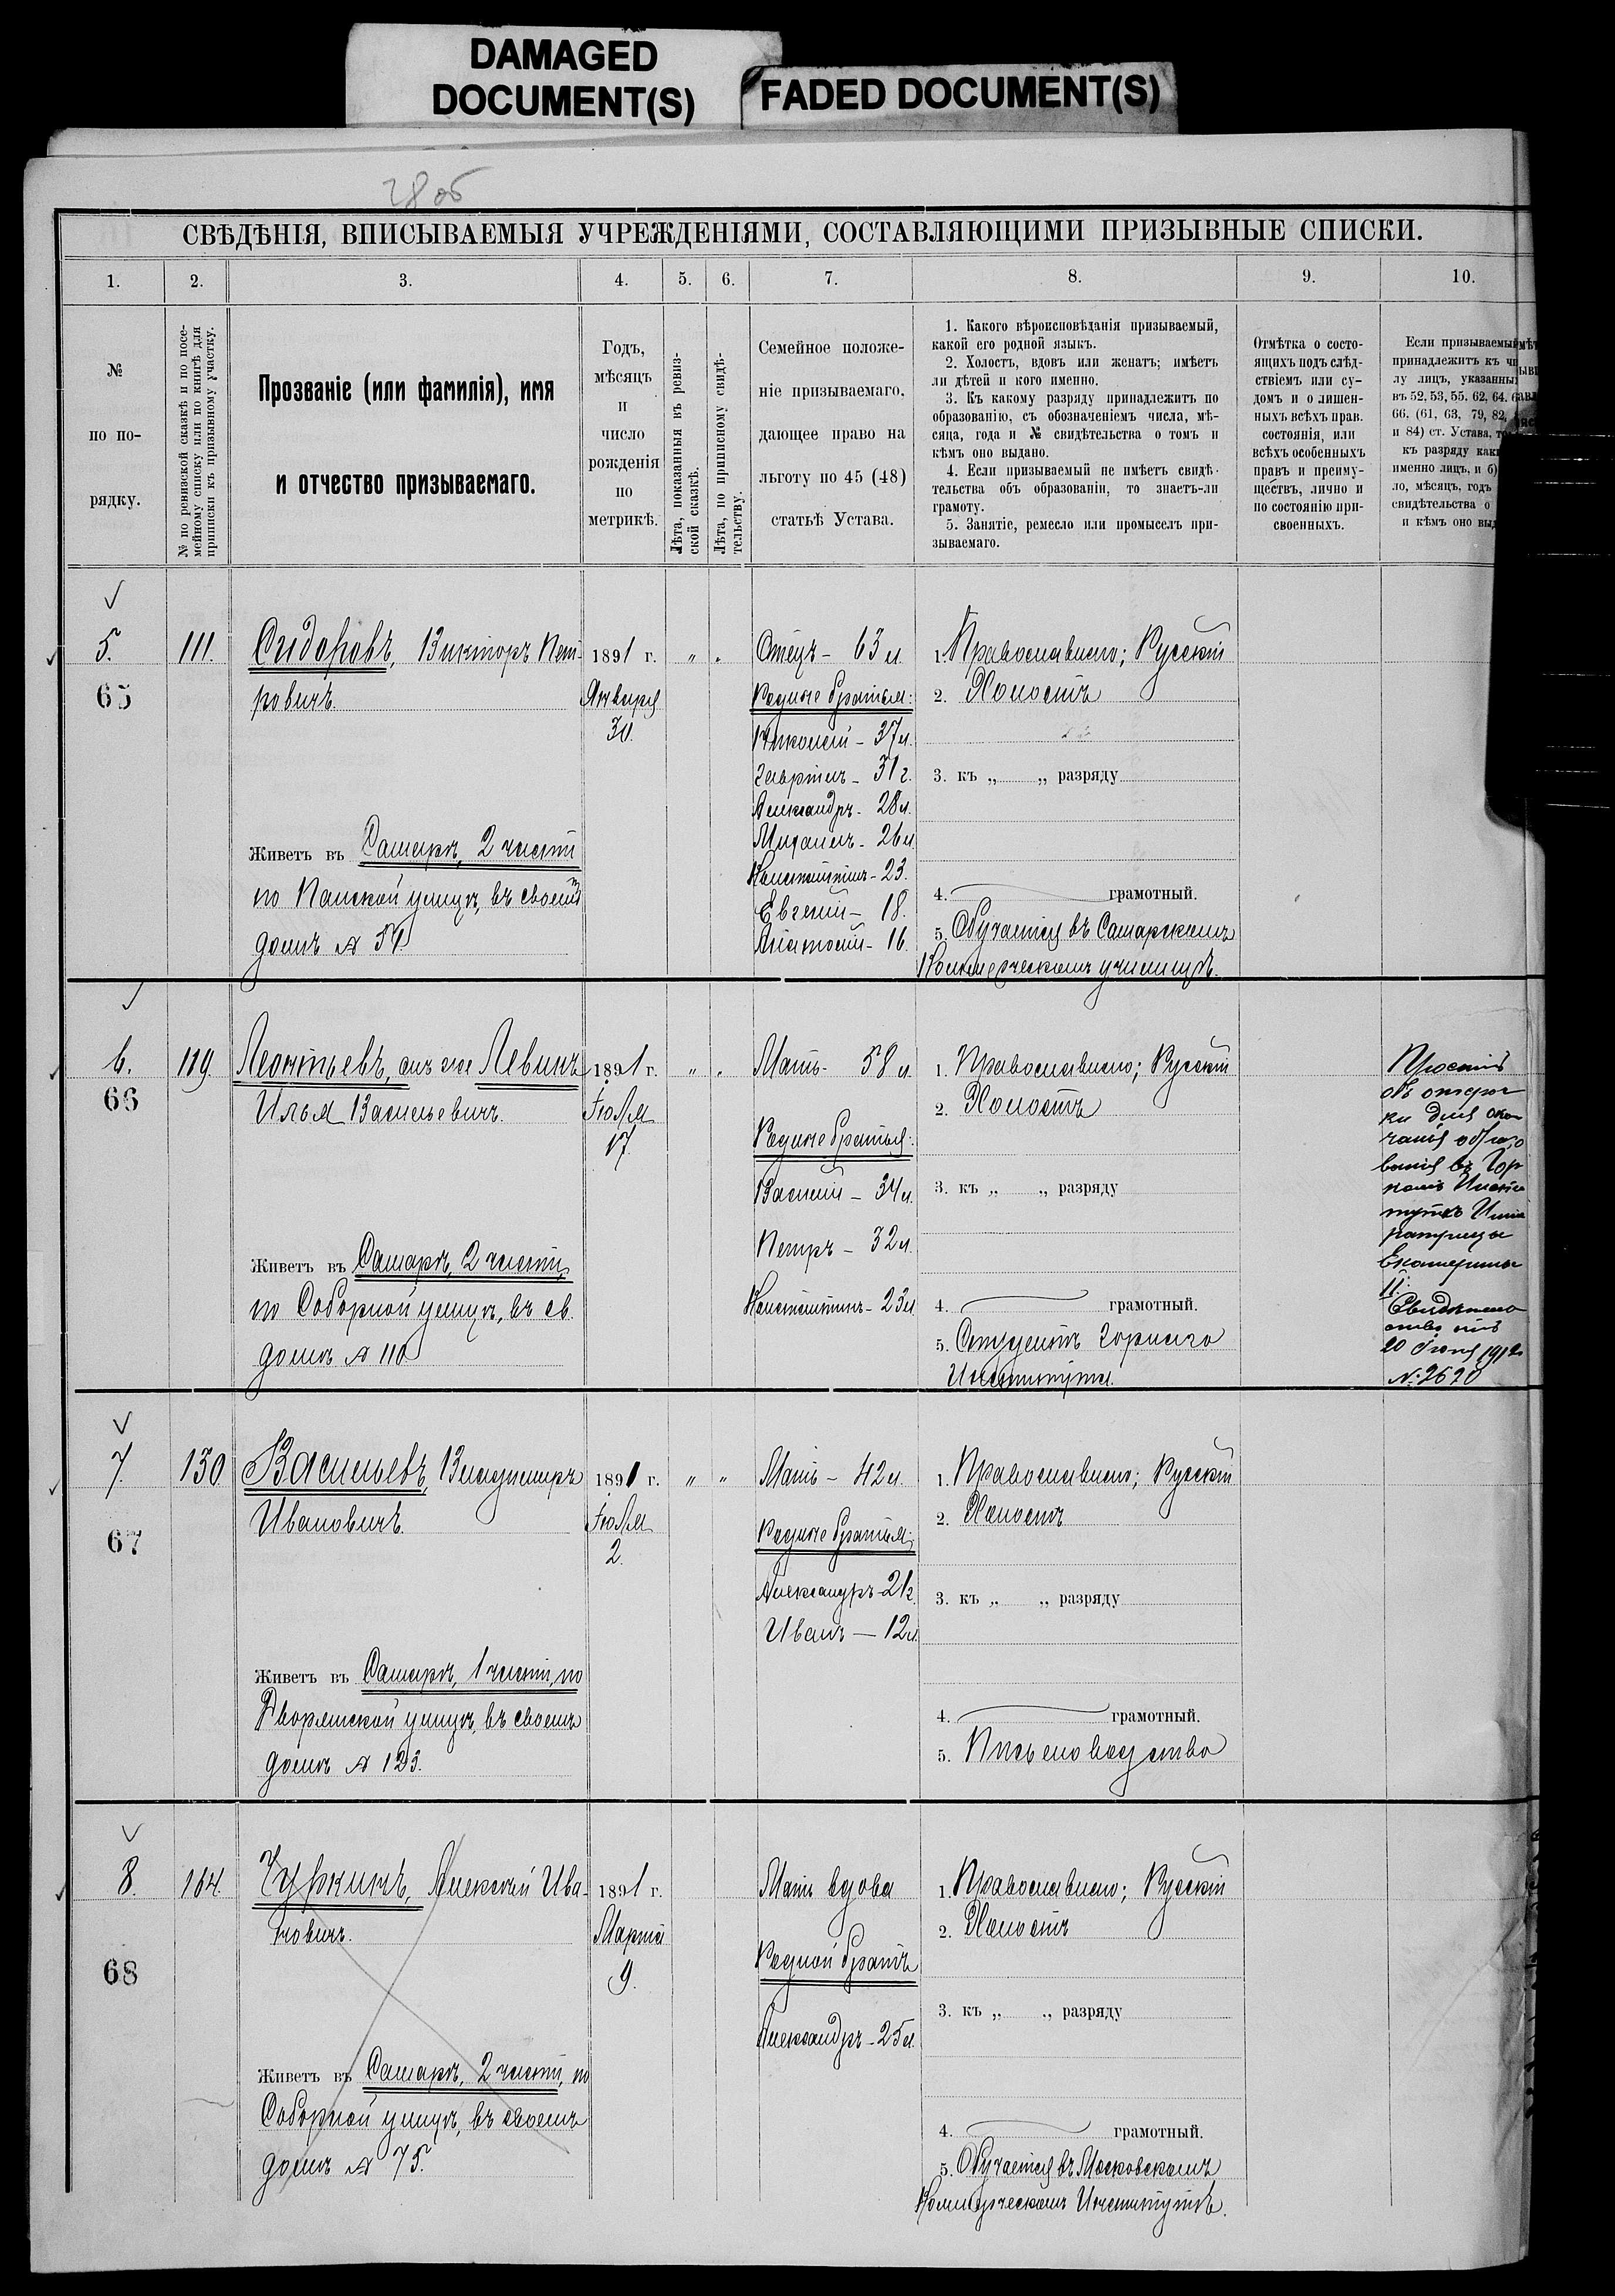 DAMAGED
DOCUMENT(S)
FADED DOCUMENT(S)
28 об
СВѢДѢНІЯ, ВПИСЫВАЕМЫЯ УЧРЕЖДЕНІЯМИ, СОСТАВЛЯЮЩИМИ ПРИЗЫВНЫЕ СПИСКИ.
1. 2. 3. 4. 5. 6. 7. 8. 9. 10.
№
по по-
рядку.
№ по ревизской сказкѣ и по посе-
мейному списку или по книгѣ для
приписки къ призывному участку.
Прозваніе (или фамилія), имя
и отчество призываемаго.
Годъ,
мѣсяцъ
и
число
рожденія
по
метрикѣ.
Лѣта, показанныя въ ревиз-
ской сказкѣ.
Лѣта, по приписному свидѣ-
тельству.
Семейное положе-
ніе призываемаго,
дающее право на
льготу по 45 (48)
статьѣ Устава.
1. Какого вѣроисповѣданія призываемый,
какой его родной языкъ.
2. Холостъ, вдовъ или женатъ; имѣетъ
ли дѣтей и кого именно.
3. Къ какому разряду принадлежитъ по
образованію, съ обозначеніемъ числа, мѣ-
сяца, года и № свидѣтельства о томъ и
кѣмъ оно выдано.
4. Если призываемый не имѣетъ свидѣ-
тельства объ образованіи, то знаетъ-ли
грамоту.
5. Занятіе, ремесло или промыселъ при-
зываемаго.
Отмѣтка о состо-
ящихъ подъ слѣд-
ствіемъ или су-
домъ и о лишен-
ныхъ всѣхъ прав.
состоянія, или
всѣхъ особенныхъ
правъ и преиму-
ществъ, лично и
по состоянію при-
своенныхъ.
Если призываемый
принадлежитъ къ чи
лу лицъ, указанны
въ 52, 53, 55. 62, 64.
66. (61, 63, 79, 82,
и 84) ст. Устава, то
къ разряду как
именно лицъ, и б)
ло, мѣсяцъ, годъ
свидѣтельства о
и кѣмъ оно выд
5.
65
111.
Сидоровъ, Викторъ Пет-
ровичъ.
Живетъ въ Самарѣ, 2 части
по Панской улицѣ, въ своемъ
домѣ № 54
1891 г.
Января
30.
„ „
Отецъ - 63 л.
Родные братья:
Николай - 37 л.
Гавріилъ - 31 г.
Александръ - 28 л.
Михаилъ - 26 л.
Константинъ - 23.
Евгеній - 18.
Анатолій - 16.
1. Православнаго; Русскій
2. Холостъ
3. къ „ „ разряду
4. грамотный.
5. Обучается въ Самарскомъ
Коммерческомъ училищѣ.
6.
66
119.
Леонтьевъ, онъ же Левинъ
Илья Васильевичъ.
Живетъ въ Самарѣ, 2 части,
по Соборной улицѣ, въ св.
домѣ № 110
1891 г.
Іюля
17.
„ „
Мать - 58 л.
Родные братья:
Василій - 34 л.
Петръ - 32 л.
Константинъ - 23 л.
1. Православнаго; Русскій
2. Холостъ
3. къ „ „ разряду
4. грамотный.
5. Студентъ Горнаго
Института.
Проситъ
объ отсроч
ки для окон
чанія образо
ванія въ Гор
номъ Инсти
тутѣ Импе
ратрицы
Екатерины
II.
Свидѣтель
ство отъ
20 Іюня 1912
№ 2620
7.
67
130
Васильевъ, Владиміръ
Ивановичъ.
Живетъ въ Самарѣ, 1 части, по
Дворянской улицѣ, въ своемъ
домѣ № 123.
1891 г.
Іюля
2.
„ „
Мать - 42 л.
Родные братья:
Александръ - 21 г.
Иванъ - 12 л.
1. Православнаго; Русскій
2. Холостъ
3. къ „ „ разряду
4. грамотный.
5. Письмоводство
8.
68
164.
Чуркинъ, Алексѣй Ива-
новичъ.
Живетъ въ Самарѣ, 2 части, по
Соборной улицѣ, въ своемъ
домѣ № 75.
1891 г.
Марта
9.
Мать вдова
Родной братъ
Александръ - 25 л.
1. Православнаго; Русскій
2. Холостъ
3. къ „ „ разряду
4. грамотный.
5. Обучается въ Московскомъ
Коммерческомъ Институтѣ.